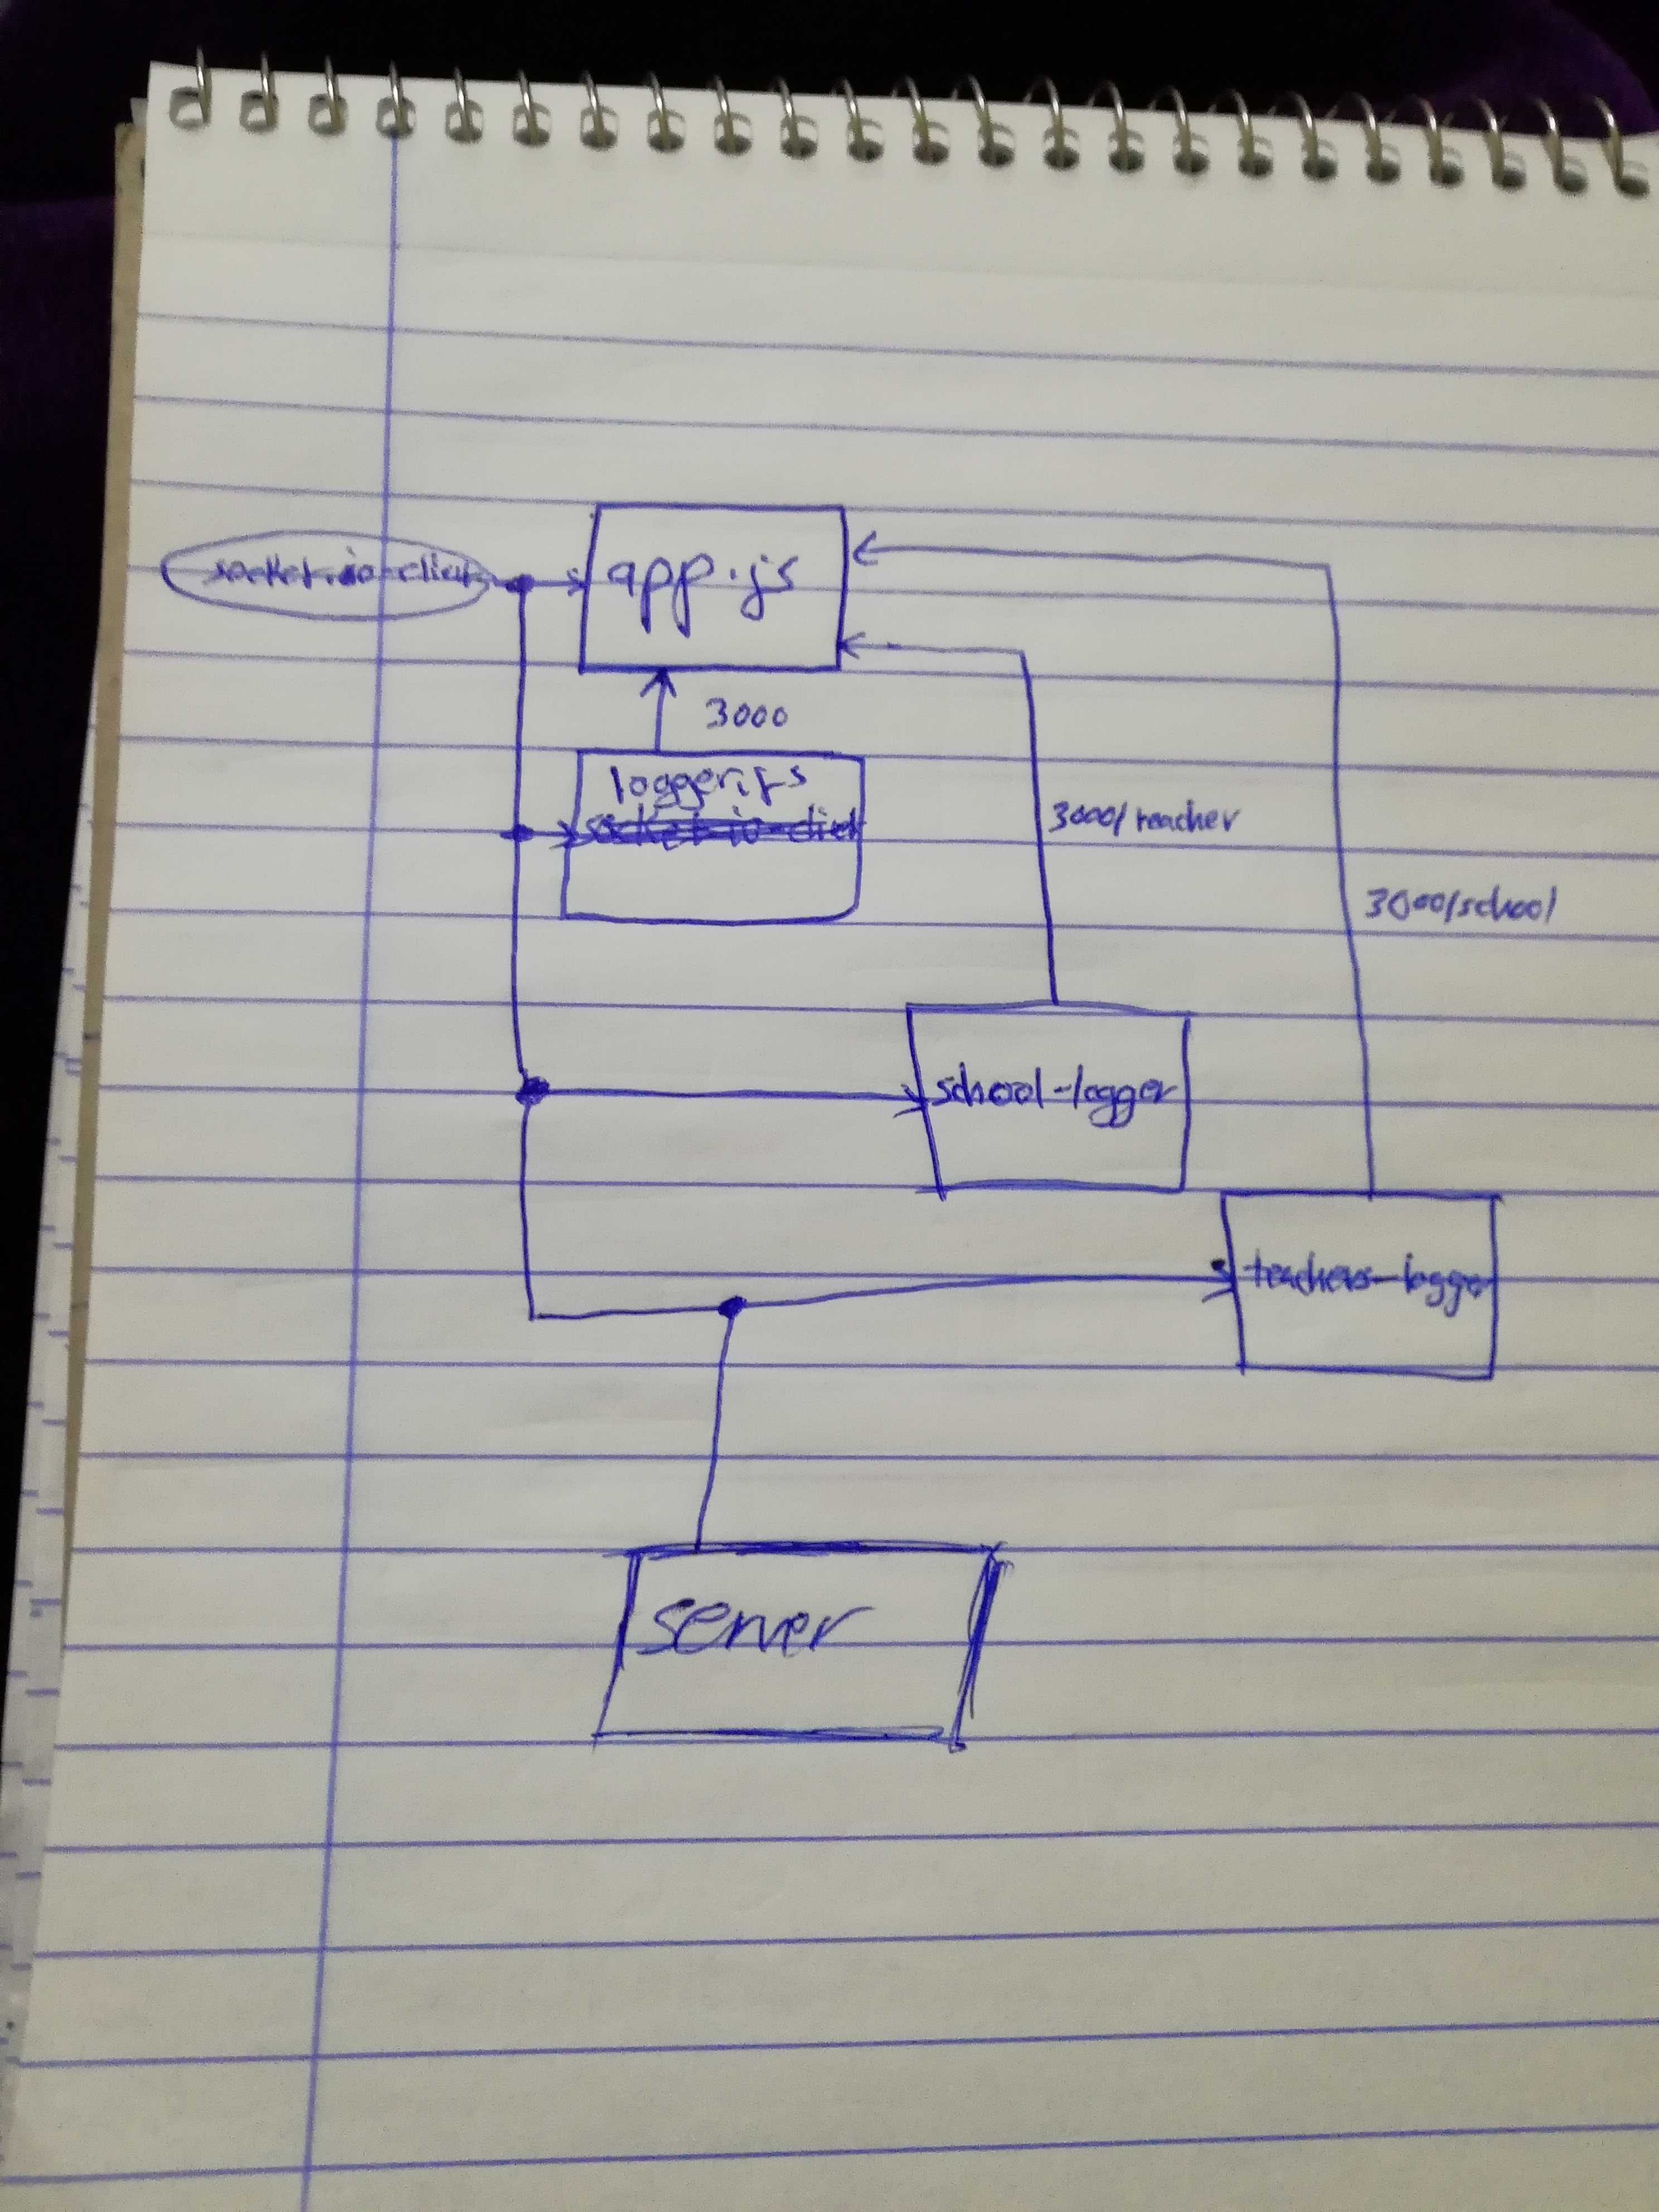 socket.io-client
app.js
3000
logger.js
socket-io-client
3000/teacher
3000/school
school-logger
teachers-logger
server